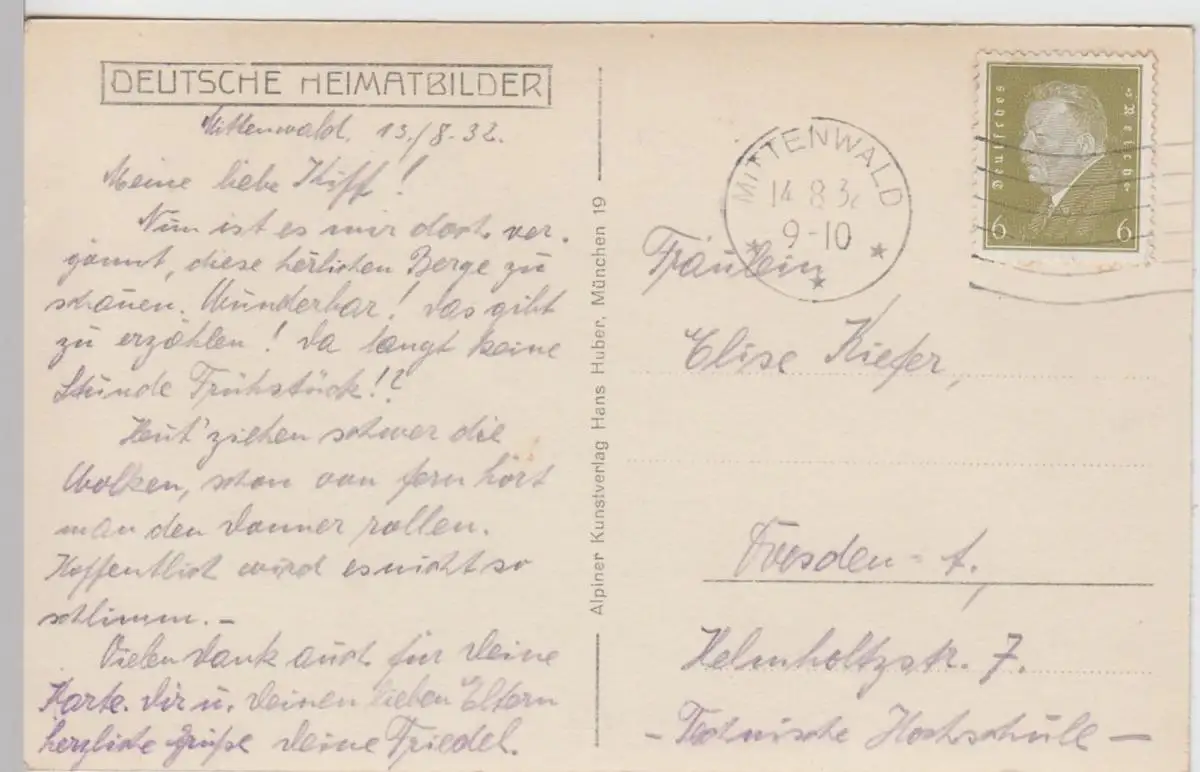 DEUTSCHE HEIMATBILDER
Mittenwald, 13./8.32.
Meine liebe Kiff!
Nun ist es mir doch ver-
gönnt, diese herlichen Berge zu
schauen. Wunderbar! Das gibt
zu erzählen! Da langt keine
Stunde Frühstück!?
Heut' ziehen schwer die
Wolken, schon von fern hört
man den Donner rollen.
Hoffentlich wird es nicht so
schlimm. –
Vielen Dank auch für Deine
Karte. Dir u. Deinen lieben Eltern
herzliche Grüße Deine Friedel.
Alpiner Kunstverlag Hans Huber, München 19
MITTENWALD
14.8.32
9-10
Deutsches Reich
6 6
Fräulein
Elise Kiefer,
Dresden-A.,
Helmholtzstr. 7.
- Technische Hochschule -